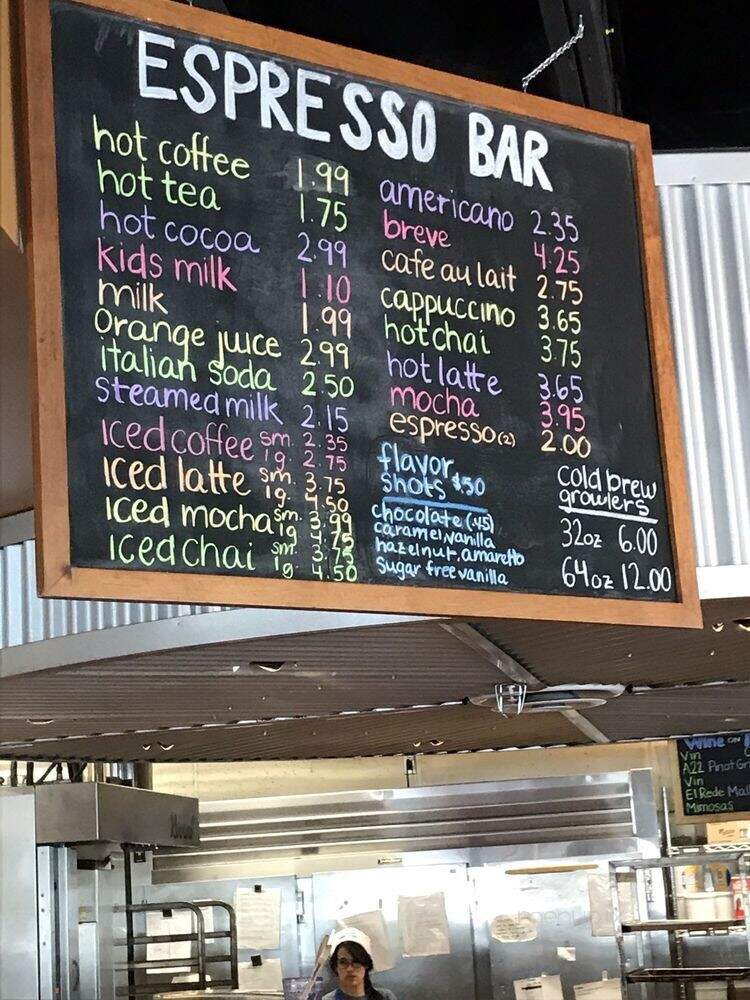 ESPRESSO BAR
hot coffee 1.99
hot tea 1.75
hot cocoa 2.99
kids milk 1.10
milk 1.99
orange juice 2.99
italian soda 2.50
steamed milk 2.15
Iced coffee sm. 2.35
lg. 2.75
Iced latte sm. 3.75
lg. 4.50
Iced mocha sm. 3.99
lg 4.75
Iced chai sm. 3.75
lg. 4.50
americano 2.35
breve 4.25
cafe au lait 2.75
cappuccino 3.65
hot chai 3.75
hot latte 3.65
mocha 3.95
espresso (2) 2.00
flavor
shots $.50
chocolate (.45)
caramel, vanilla
hazelnut, amaretto
Sugar free vanilla
Cold brew
growlers
32oz 6.00
64oz 12.00
Wine
Vin
A22 Pinot Gr
Vin
El Rede Mal
Mimosas